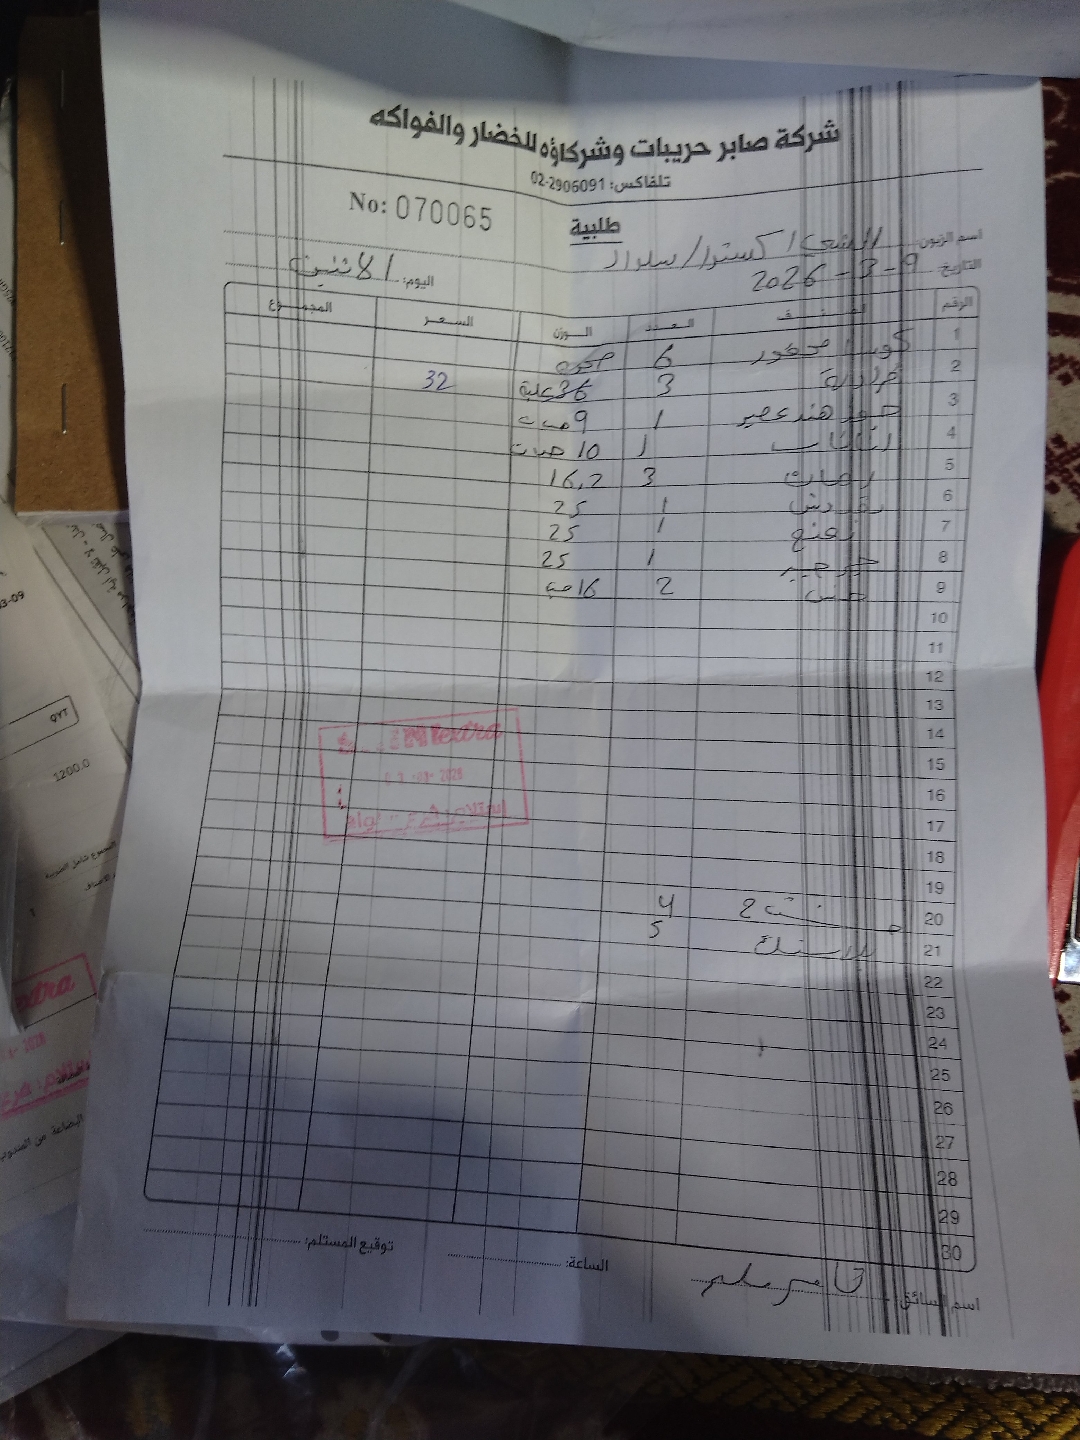 شركة صابر حريبات وشركاؤه للخضار والفواكه
تلفاكس: 02-2906091
No: 070065
طلبية
اسم الزبون: الشني اكسترا / سلواد
التاريخ: 9-3-2026 اليوم: الاثنين
الرقم الصنف العدد الوزن السعر المجموع
1 كوسا محفور 6
2 3 36 علبة 32
3 جوز هند عصير 1 9 حبات
4 اناناس 1 10 حبات
5 رمان 3 16,2
6 بقدونس 1 25
7 نعنع 1 25
8 جرجير 1 25
9 خس 2 16 حبة
10
11
12
13
14
15
16
17
18
19
20 4
21 بلاستيك 5
22
23
24
25
26
27
28
29
30
extra
اسم السائق:
الساعة:
توقيع المستلم:
03-09
QTY
1200.0
المجموع شامل الضريبة
1
extra